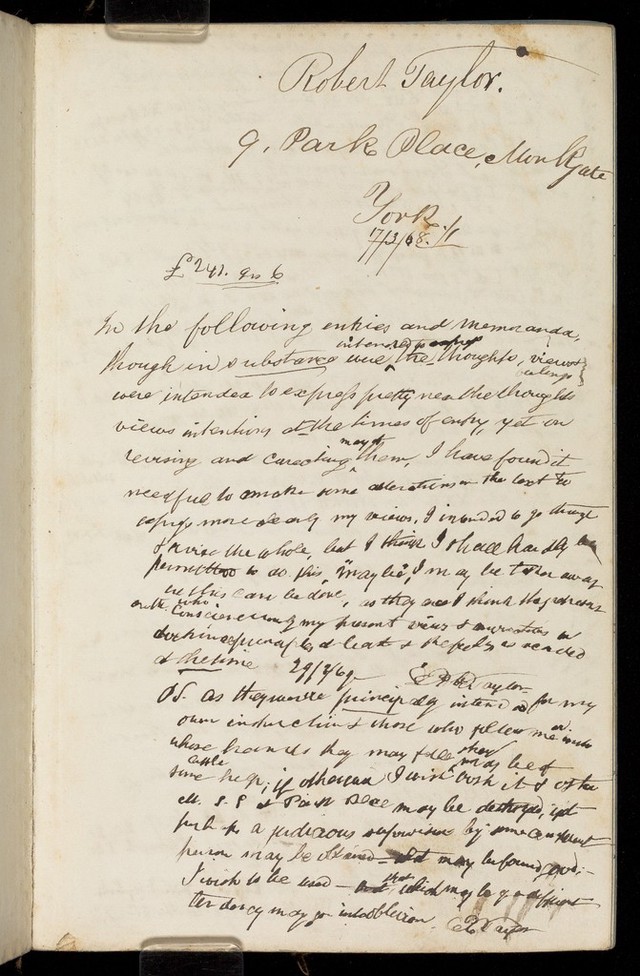 Robert Taylor.
9. Park Place, Monkgate
York
7/3/68.
£241.
In the following entries and memoranda,
intended to express
though in substance the thoughts, views
were intended to express pretty near the thoughts
views intentions at the times of entry, yet on
revising and correcting many of them, I have found it
needful to make some alterations in the text to
express more clearly my views, I intended to go through
& revise the whole, but I think I shall hardly be
permitted to do this, "may be", I may be taken away
this can be done, as they are I think they
who
my present views & in
doctrine principles & at least &
at the time 29/3/69 R Taylor
PS. as they were principally intended for my
own instruction & those who follow me or into
whose hands they may fall they may be of
little
some help; if otherwise I wish
M.S.S at Park Place may be destroyed, yet
perhaps a judicious supervision by some competent
person may be obtained - what may be found good,
I wish to be used - but that which may be of a different
tendency may go into oblivion R Taylor